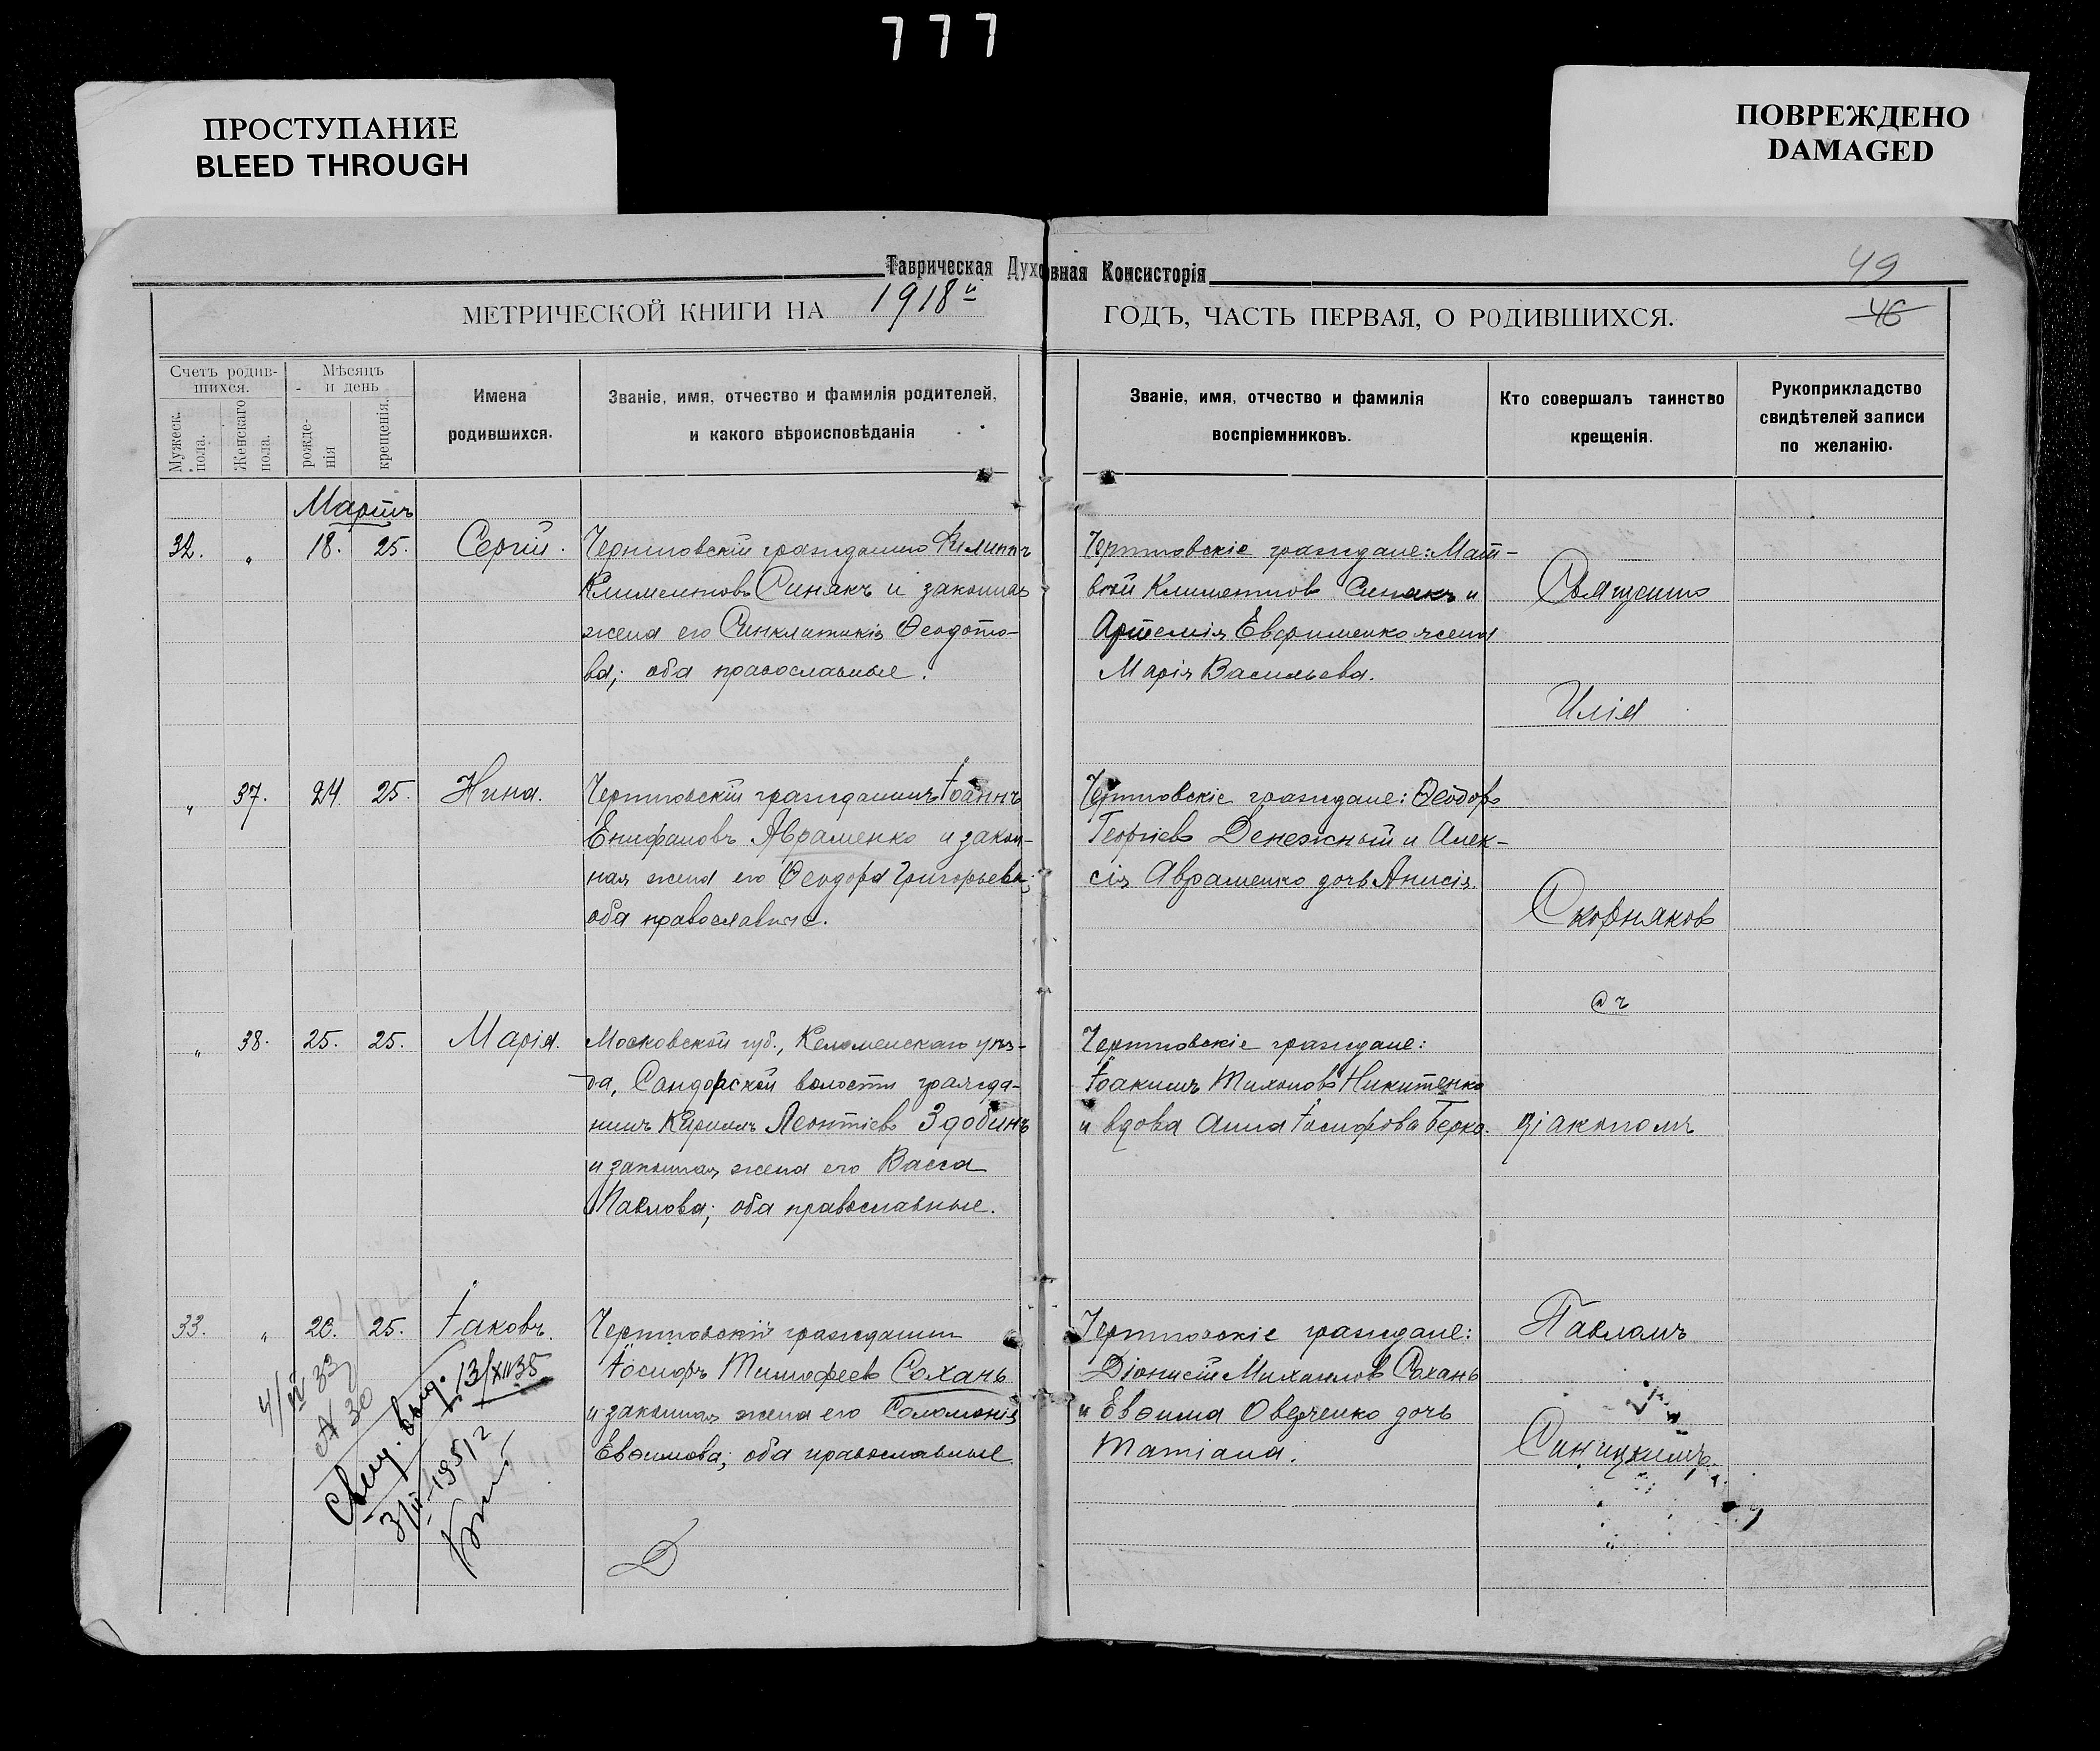 777
ПРОСТУПАНИЕ
BLEED THROUGH
ПОВРЕЖДЕНО
DAMAGED
Таврическая Духовная Консисторія
49
46
МЕТРИЧЕСКОЙ КНИГИ НА 1918й ГОДЪ, ЧАСТЬ ПЕРВАЯ, О РОДИВШИХСЯ.
Счетъ родив-
шихся.
Мужеск. пола.
Женскаго пола.
Мѣсяцъ
и день
рожде-
нія
крещенія.
Имена
родившихся.
Званіе, имя, отчество и фамилія родителей,
и какого вѣроисповѣданія
Званіе, имя, отчество и фамилія
воспріемниковъ.
Кто совершалъ таинство
крещенія.
Рукоприкладство
свидѣтелей записи
по желанію.
Мартъ
32. " 18. 25. Сергій.
гражданинъ Филиппъ
Климентовъ Синякъ и законная
жена его Синклитикія Ѳеодото-
ва; оба православные.
граждане: Мат-
вей Климентовъ Синякъ и
Артемія Евфименко жена
Марія Васильева.
" 37. 24 25. Нина.
гражданинъ Іоаннъ
Епифановъ Авраменко и закон-
ная жена его Ѳеодора Григорьева;
оба православные.
граждане: Ѳеодоръ
Георгіевъ Денежный и Алек-
сія Авраменко дочь Анисія.
" 38. 25. 25. Марія.
Московской губ., Коломенскаго уѣз-
да, волости гражда-
нинъ Кириллъ Леонтіевъ Здобинъ
и законная жена его Васса
Павлова; оба православные.
граждане:
Іоакимъ Тихоновъ Никитенко
и вдова Анна Іосифова Берко.
33. " 20. 25. Іаковъ.
гражданинъ
Іосифъ Тимофеевъ Сохань
и законная жена его Соломонія
Евѳимова; оба православные.
граждане:
Діонисій Михаиловъ Сохань
и Евѳима Оверченко дочь
Татіана.
Священникъ
Илія
Скорняковъ
съ
діакономъ
Павломъ
Синицкимъ.
4/IV 33
№ 30
Свид. выд. 13/XII 35